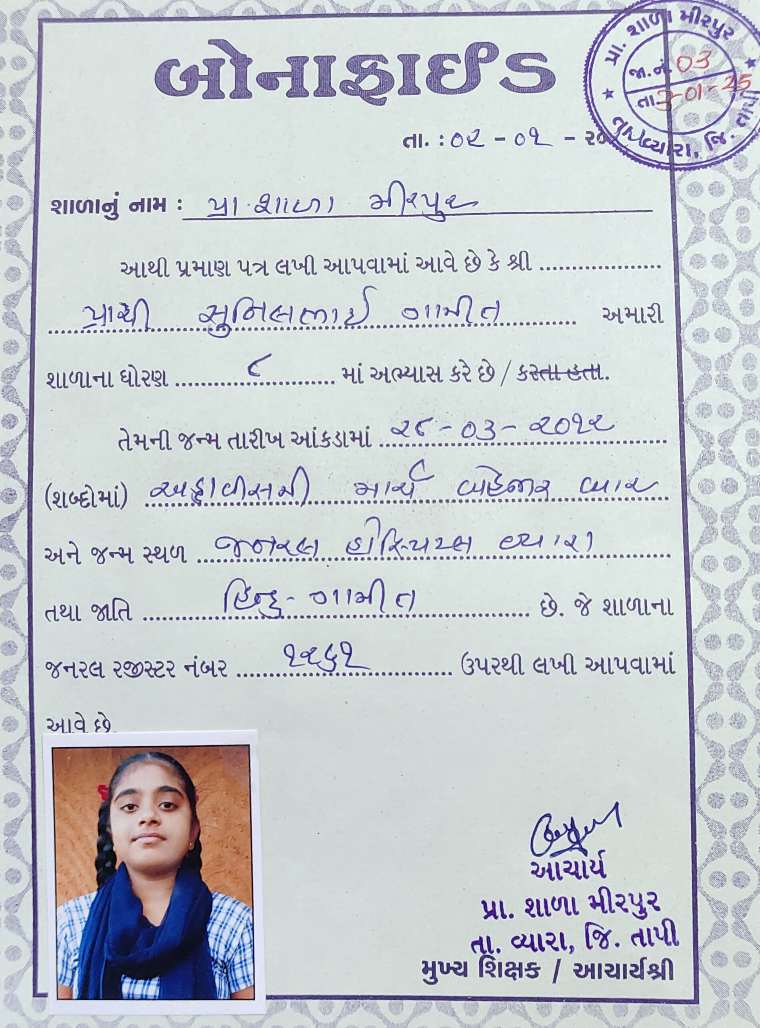 બોનાફાઈડ
પ્રા. શાળા મીરપુર
જા.નં. 03
તા. 3-01-25
તા. વ્યારા, જિ. તાપી
તા. : ૦૨ - ૦૧ - ૨૦
શાળાનું નામ : પ્રા. શાળા મીરપુર
આથી પ્રમાણ પત્ર લખી આપવામાં આવે છે કે શ્રી
પ્રાચી સુનિલભાઈ ગામીત અમારી
શાળાના ધોરણ ૮ માં અભ્યાસ કરે છે / કરતા હતા.
તેમની જન્મ તારીખ આંકડામાં ૨૮-૦૩-૨૦૧૨
(શબ્દોમાં) અઠ્ઠાવીસમી માર્ચ બેહજાર બાર
અને જન્મ સ્થળ જનરલ હોસ્પિટલ વ્યારા
તથા જાતિ હિન્દુ - ગામીત છે. જે શાળાના
જનરલ રજીસ્ટર નંબર ૧૨૬૧ ઉપરથી લખી આપવામાં
આવે છે
આચાર્ય
પ્રા. શાળા મીરપુર
તા. વ્યારા, જિ. તાપી
મુખ્ય શિક્ષક / આચાર્યશ્રી